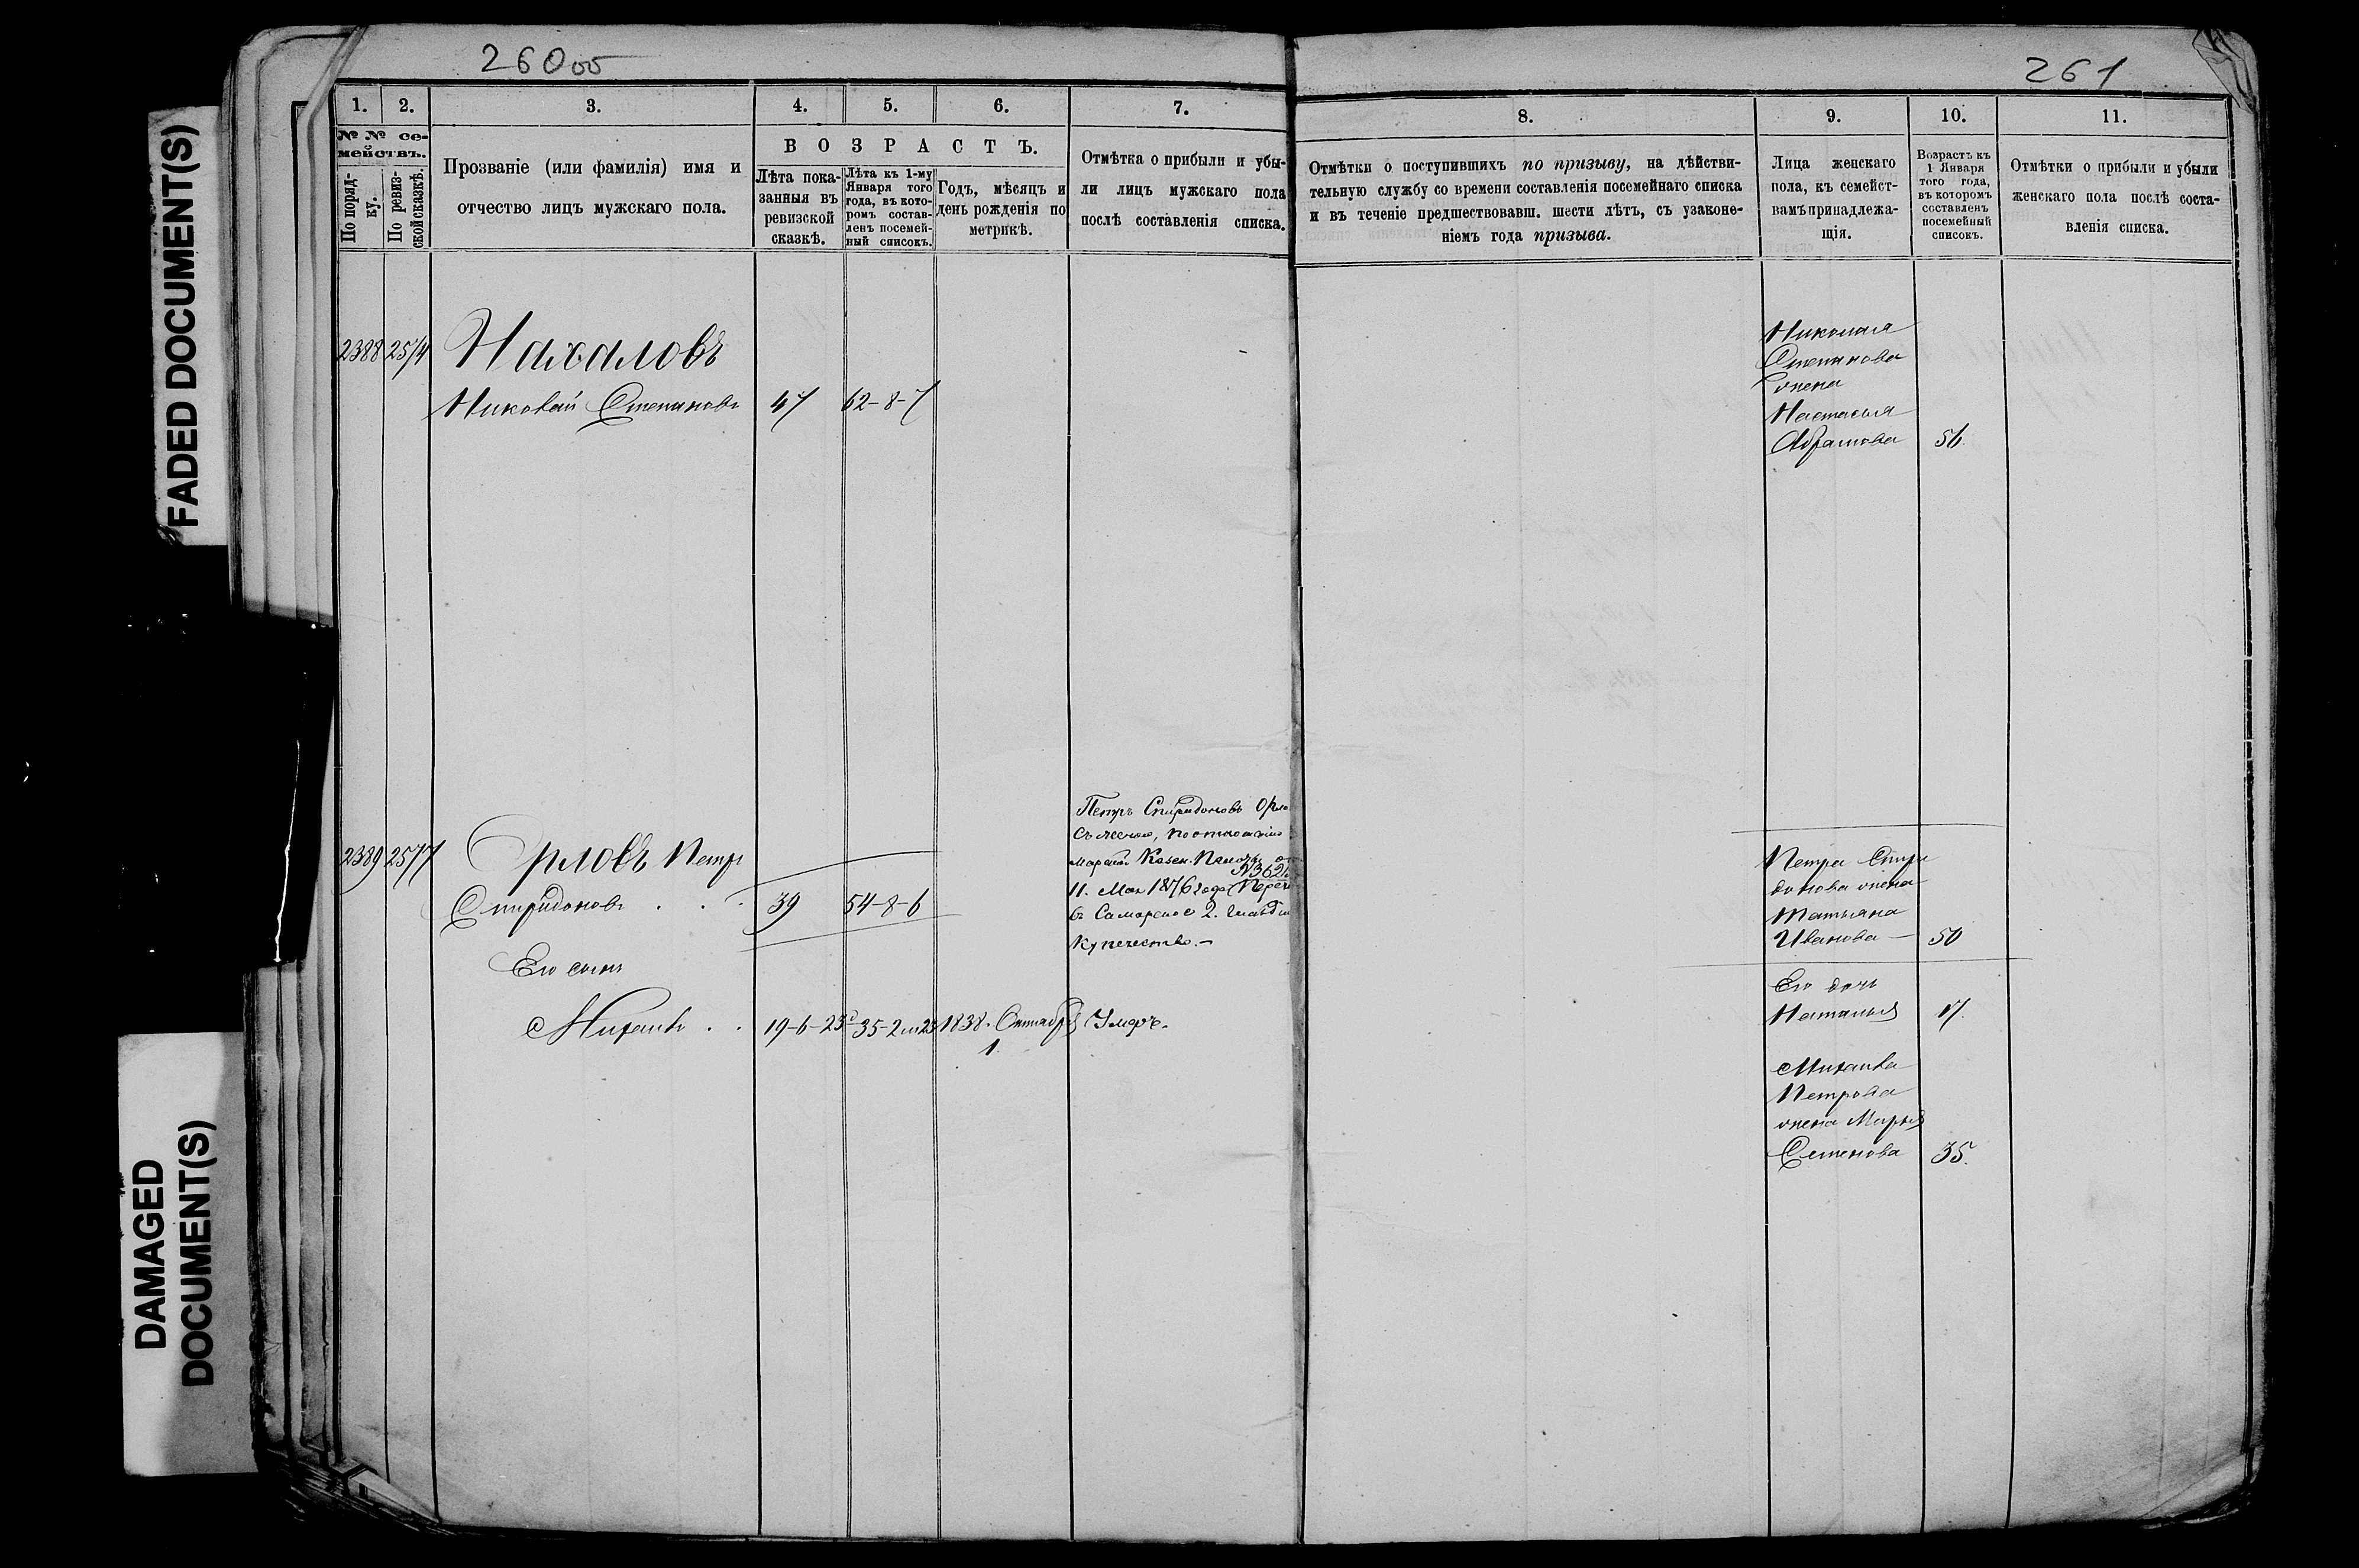 FADED DOCUMENT(S)
DAMAGED
DOCUMENT(S)
260об
261
1.
2.
3.
4.
5.
6.
7.
8.
9.
10.
11.
№ № се-
мействъ.
По поряд-
ку.
По ревиз-
ской сказкѣ.
Прозваніе (или фамилія) имя и
отчество лицъ мужскаго пола.
ВОЗРАСТЪ.
Лѣта пока-
занныя въ
ревизской
сказкѣ.
Лѣта къ 1-му
Января того
года, въ кото-
ромъ состав-
ленъ посемей-
ный списокъ.
Годъ, мѣсяцъ и
день рожденія по
метрикѣ.
Отмѣтка о прибыли и убы-
ли лицъ мужскаго пола
послѣ составленія списка.
Отмѣтки о поступившихъ по призыву, на дѣйстви-
тельную службу со времени составленія посемейнаго списка
и въ теченіе предшествовавш. шести лѣтъ, съ узаконе-
ніемъ года призыва.
Лица женскаго
пола, къ семейст-
вамъ принадлежа-
щія.
Возрастъ къ
1 Января
того года,
въ которомъ
составленъ
посемейный
списокъ.
Отмѣтки о прибыли и убыли
женскаго пола послѣ соста-
вленія списка.
2388
Нахаловъ
Николай Степановъ
47
62-8-7
Николая
Степанова
жена
Настасья
Абрамова
56.
2389
2577
Орловъ Петръ
Спиридоновъ
39
54-8-6
Петръ Спиридоновъ Орло
съ женою, по отношенію
Казен. Палаты
11. Мая 1876 года
въ Самарское 2. Гильдіи
Купечество.—
Его сынъ
Михаилъ
19-6-23
35-2
1838. Октября
1.
Умеръ.
Петра Спири
донова жена
Татьяна
Иванова —
50
Его дочь
Наталья
17.
Михаила
Петрова
жена Марья
Семенова
35.